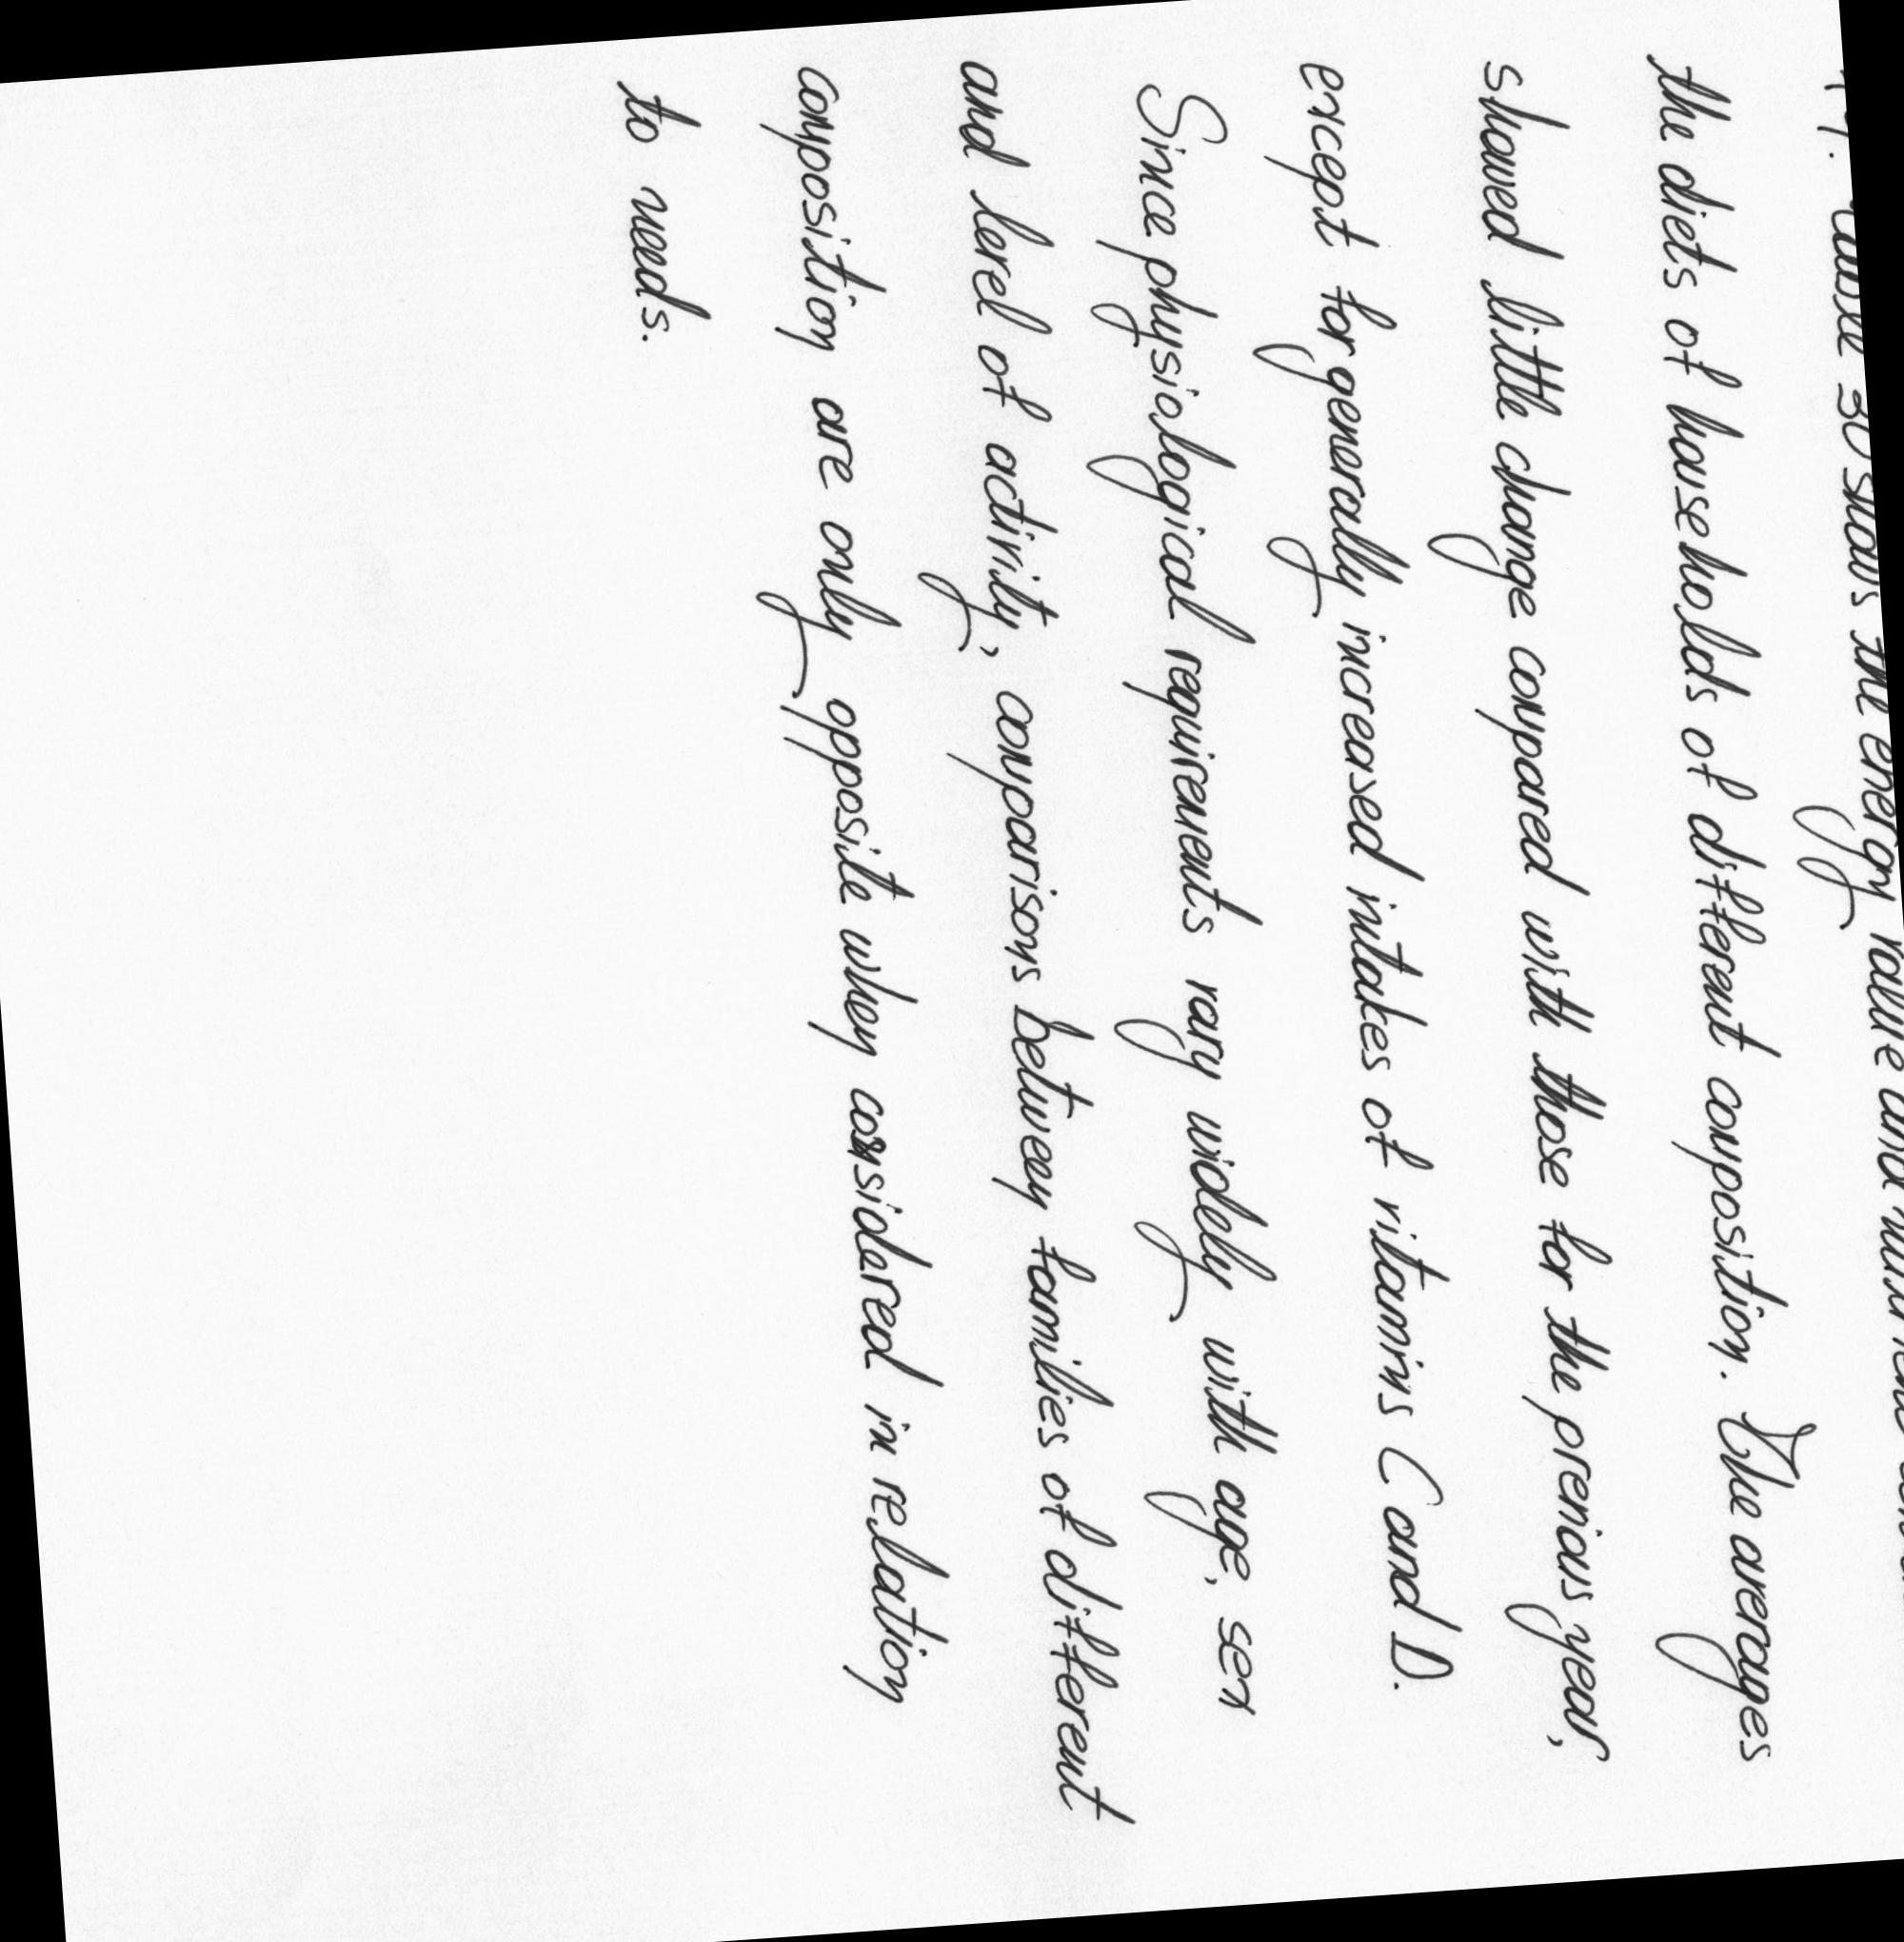 30 shows the energy value and
the diets of households of different composition. The averages
showed little change compared with those for the previous year,
except for generally increased intakes of vitamins C and D.
Since physiological requirements vary widely with age, sex
and level of activity, comparisons between families of different
composition are only opposite when considered in relation
to needs.